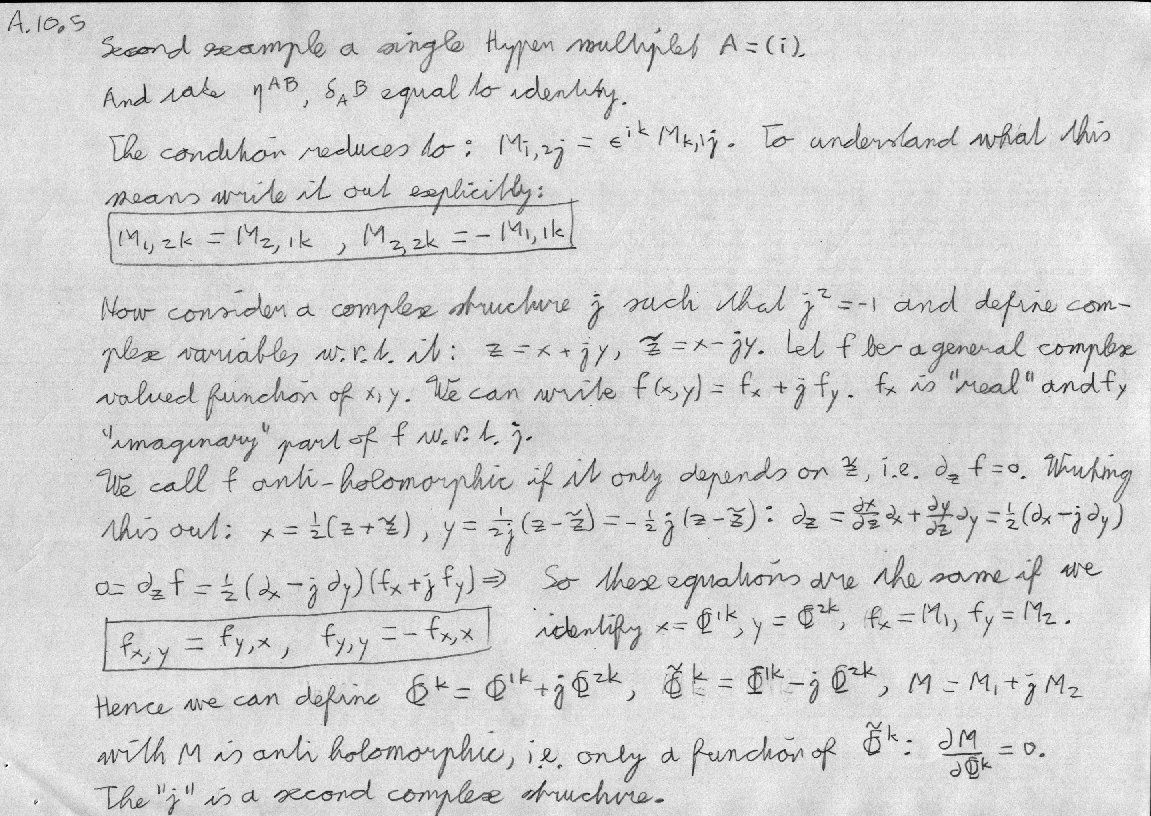 A.10.5
Second example a single Hyper multiplet A=(i).
And take η^{AB}, δ_A^B equal to identity.
The condition reduces to: M_{i,2j} = ϵ^{ik} M_{k,1j}. To understand what this
means write it out explicitly:
M_{1,2k} = M_{2,1k}, M_{2,2k} = -M_{1,1k}
Now consider a complex structure j such that j² = -1 and define com-
plex variables w.r.t. it: z = x + jy, z̃ = x - jy. Let f be a general complex
valued function of x,y. We can write f(x,y) = f_x + j f_y. f_x is "real" and f_y
"imaginary" part of f w.r.t. j.
We call f anti-holomorphic if it only depends on z̃, i.e. ∂_z f = 0. Writing
this out: x = ½(z+z̃), y = 1/(2j) (z-z̃) = -½ j(z-z̃): ∂_z = ∂x/∂z ∂_x + ∂y/∂z ∂_y = ½(∂_x - j∂_y)
0 = ∂_z f = ½(∂_x - j∂_y)(f_x + j f_y) ⇒ So these equations are the same if we
f_{x,y} = f_{y,x}, f_{y,y} = -f_{x,x} identify x = Φ^{1k}, y = Φ^{2k}, f_x = M_1, f_y = M_2.
Hence we can define Φ^k = Φ^{1k} + jΦ^{2k}, Φ̃^k = Φ^{1k} - jΦ^{2k}, M = M_1 + j M_2
with M is anti holomorphic, i.e. only a function of Φ̃^k: ∂M/∂Φ^k = 0.
The "j" is a second complex structure.